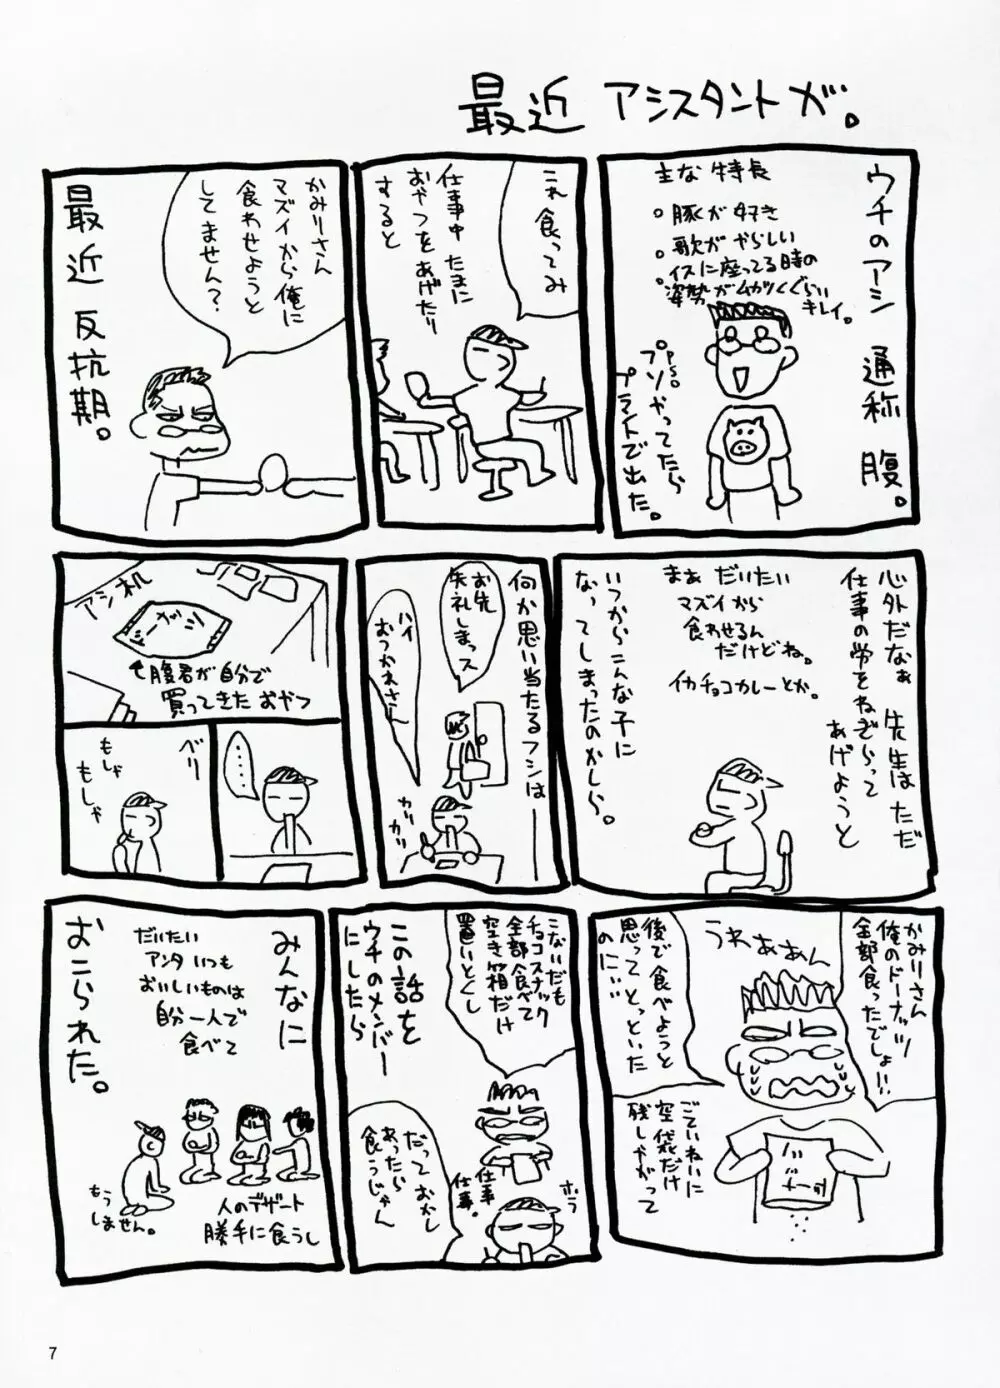 最近 アシスタントが。
ウチのアシ 通称 腹。
主な特長
。豚が好き
。歌がやらしい
。イスに座ってる時の
姿勢がムカツくぐらい
キレイ。
P.S。
プソやってたら
プラントで出た。
これ食ってみ
仕事中 たまに
おやつをあげたり
すると
かみりさん
マズイから俺に
食わせようと
してません?
最近 反抗期。
心外だなぁ 先生はただ
仕事の労をねぎらって
あげようと
まぁ だいたい
マズイから
食わせるん
だけどね。
イカチョコカレーとか。
いつからこんな子に
なってしまったのかしら。
何か思い当たるフシは――
お先
失礼しまっス
ハイ
おつかれさん
カリ
カリ
アシ机
腹君が自分で
買ってきたおやつ
……
ベリ
もしゃ
もしゃ
かみりさん
俺のドーナッツ
全部食ったでしょ!!
うわぁぁん
後で食べようと
思ってとっといた
のに…
ごていねいに
空袋だけ
残しやがって
こないだも
チョコスナック
全部食べて
空き箱だけ
置いとくし
仕事
仕事。
ホラ
だっておかし
あったら
食うじゃん
この話を
ウチのメンバー
にしたら
みんなに
だいたい
アンタいつも
おいしいものは
自分一人で
食べて
人のデザート
勝手に食うし
もう
しません。
おこられた。
7